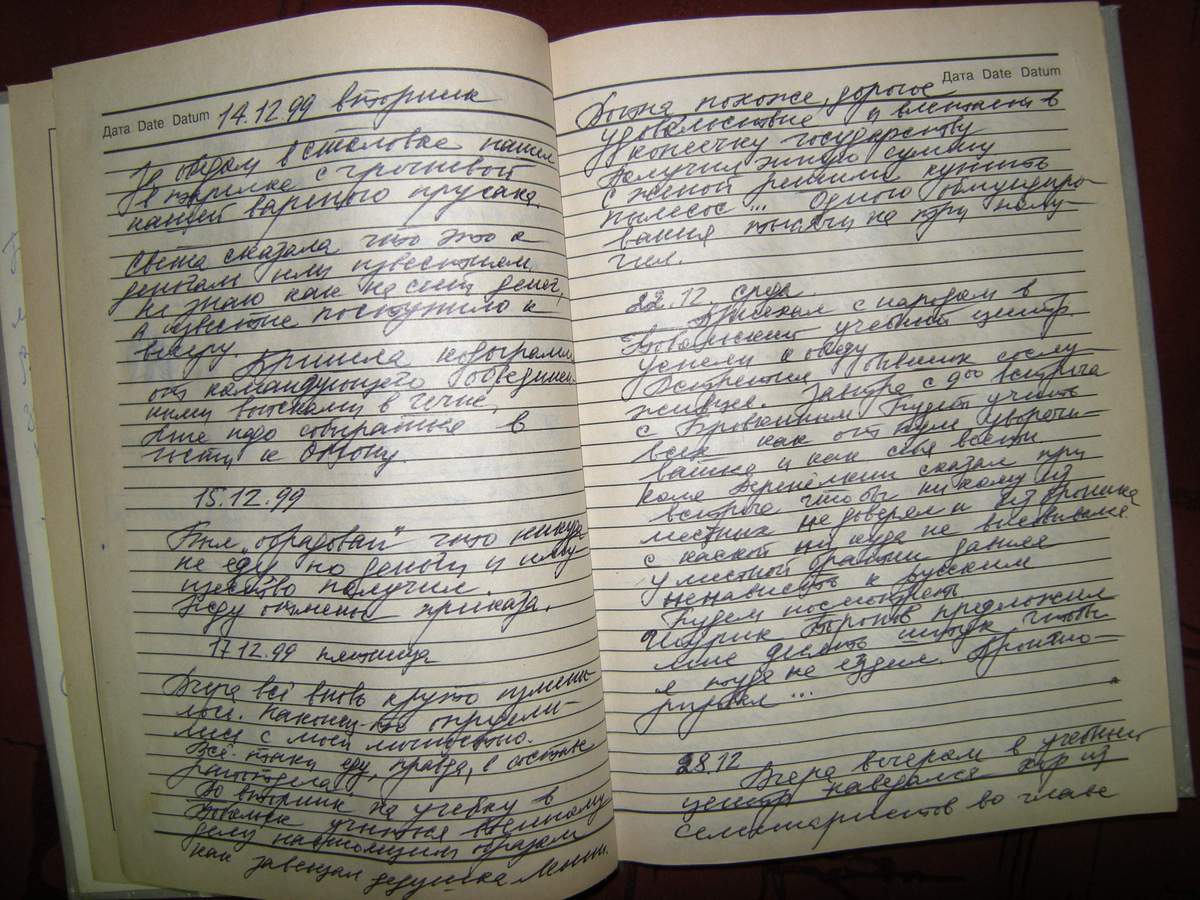 Дата Date Datum 14.12.99 вторник
За обедом в столовке нашел
в тарелке с гречневой
кашей вареного прусака.
Света сказала что это к
деньгам или известиям
Не знаю как на счет денег,
а известие поступило к
вечеру.
Пришла кодограмма
от командующего объединен-
ными войсками в Чечне,
Мне надо собираться в
гости к
15.12.99
Был „обрадован" что никуда
не еду но деньги и иму-
щество получил.
Жду отмены приказа.
17.12.99 пятница
Вчера всё вновь круто измени-
лось. Наконец-то определи-
лись с моей личностью.
Всё таки еду, правда, в составе
Во вторник на учебку в
учиться военному
делу настоящим образом
как завещал дедушка Ленин.
Дата Date Datum
Война похоже, дорогое
удовольствие и влетает в
копеечку государству
Получил энную сумму
с женой решили купить
пылесос... Одного обмундиро-
вания тысячи на полу-
чил.
22.12. среда
Приехал с народом в
учебный центр
успели к обеду
Встретил бывших сослу-
живцев. Завтра с утра встреча
с Будет учить
всех как от пуль уворачи-
ваться и как себя вести
Коля сказал при
встрече чтобы никому из
местных не доверял и из броника
с каской ни куда не высовывался.
У местной братии давняя
ненависть к русским
Будем посмотреть
предложил
мне десять штук чтобы
я туда не ездил. Проигно-
рировал...
28.12
Вчера вечером в учебный
центр наведался хор из
семинаристов во главе